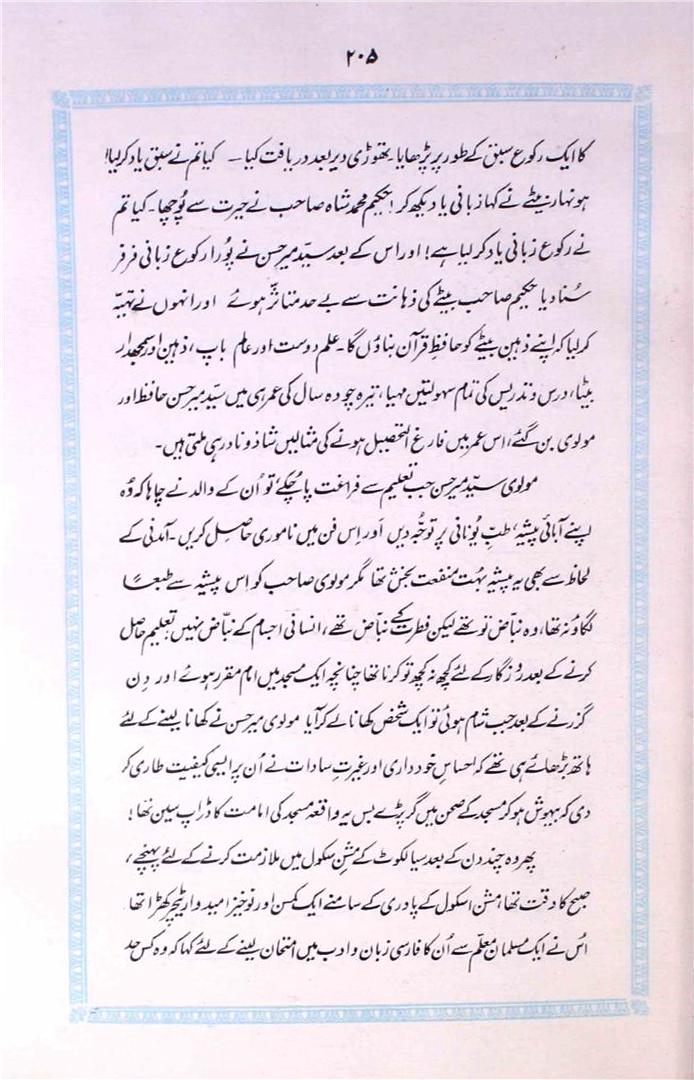 ۲۰۵
کا ایک رکوع سبق کے طور پر پڑھایا۔ تھوڑی دیر بعد دریافت کیا – کیا تم نے سبق یاد کر لیا!
ہونہار بیٹے نے کہا زبانی یا دیکھ کر! حکیم محمد شاہ صاحب نے حیرت سے پُوچھا۔ کیا تم
نے رکوع زبانی یاد کر لیا ہے! اور اس کے بعد سیّد میر حسن نے پُورا رکوع زبانی فرفر
سُنا دیا حکیم صاحب بیٹے کی ذہانت سے بے حد متاثر ہوئے اور انہوں نے تہیّہ
کر لیا کہ اپنے ذہین بیٹے کو حافظ قرآن بناؤں گا۔ علم دوست اور عالم باپ، ذہین اور سمجھدار
بیٹا، درس و تدریس کی تمام سہولتیں مہیا، تیرہ چودہ سال کی عمر ہی میں سیّد میر حسن حافظ اور
مولوی بن گئے، اس عمر میں فارغ التحصیل ہونے کی مثالیں شاذ و نادر ہی ملتی ہیں۔
مولوی سیّد میر حسن جب تعلیم سے فراغت پا چُکے تو اُن کے والد نے چاہا کہ وُہ
اپنے آبائی پیشہ، طبِ یُونانی پر توجُّہ دیں اَور اِس فن میں ناموری حاصِل کریں۔ آمدنی کے
لحاظ سے بھی یہ پیشہ بہُت منفعت بخش تھا مگر مولوی صاحب کو اِس پیشہ سے طبعاً
لگاؤ نہ تھا، وہ نباّض تو تھے لیکن فطرت کے نباّض تھے، انسانی اجسام کے نباّض نہیں، تعلیم حاصل
کرنے کے بعد روزگار کے لئے کچھ نہ کچھ تو کرنا تھا چنانچہ ایک مسجد میں امام مقرر ہوئے اور دِن
گزرنے کے بعد جب شام ہوئی تو ایک شخص کھانا لے کر آیا مولوی میر حسن نے کھانا لینے کے لئے
ہاتھ بڑھائے ہی تھے کہ احساسِ خود داری اور غیرتِ سادات نے اُن پر ایسی کیفیت طاری کر
دی کہ بیہوش ہو کر مسجد کے صحن میں گر پڑے بس یہ واقعہ مسجد کی امامت کا ڈراپ سین تھا!
پھر وہ چند دن کے بعد سیالکوٹ کے مشن سکول میں ملازمت کرنے کے لئے پہنچے،
صبح کا وقت تھا مشن اسکول کے پادری کے سامنے ایک کمسن اور نوخیز امیدوار ٹیچر کھڑا تھا
اُس نے ایک مسلمان معلّم سے اُن کا فارسی زبان و ادب میں امتحان لینے کے لئے کہا کہ وہ کس حد